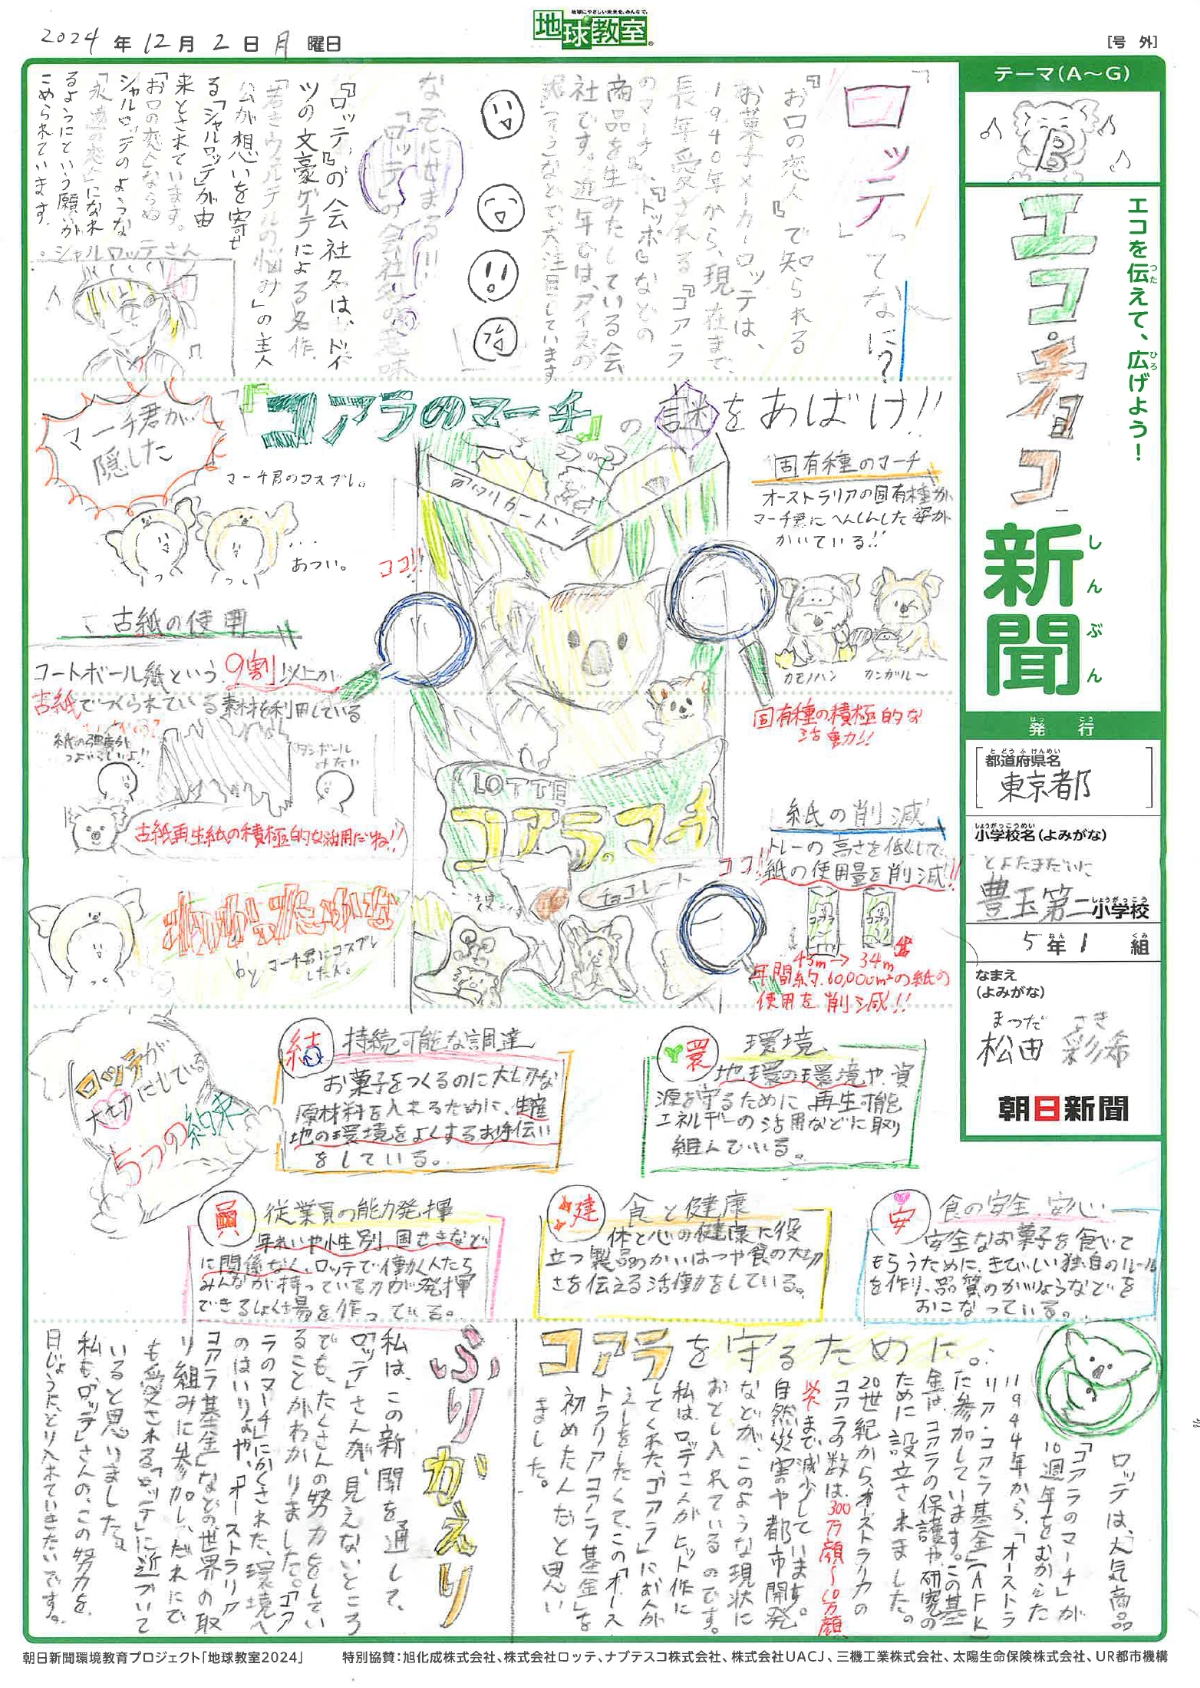 2024年12月2日月曜日
地球にやさしい未来を、みんなで。
地球教室
[号外]
テーマ(A〜G)
B
エコを伝えて、広げよう!
つた
ひろ
エコ・チョコ
新聞
しんぶん
発行
はっこう
都道府県名
とどうふけんめい
東京都
しょうがっこうめい
小学校名(よみがな)
とよたまだいに
豊玉第二小学校
しょうがっこう
5年1組
なまえ
(よみがな)
まつだ さき
松田 彩希
朝日新聞
「ロッテ」ってなに?
『お口の恋人』で知られる
お菓子メーカーロッテは、
1940年から、現在まで、
長年愛される『コアラ
のマーチ』、『トッポ』などの
商品を生みだしている会
社です。近年では、アイスの
などで大注目しています
なぞにせまる!!
「ロッテ」の会社名の意味
『ロッテ』の会社名は、ドイ
ツの文豪ゲーテによる名作、
「若きウェルテルの悩み」の主人
公が想いを寄せ
る「シャルロッテ」が由
来とされています。
「お口の恋人」ならぬ
シャルロッテのような
「永遠の恋人」になれ
るようにという願いが
こめられています。
シャルロッテさん
マーチ君が
隠した
『コアラのマーチ』の謎をあばけ!!
マーチ君のコスプレ。
・・・
あつい。
ココ!!
古紙の使用
コートボール紙という9割以上が
古紙でつくられている素材を利用している
紙の強度外
つよいらしいよ!!
ダンボール
みたい
古紙再生紙の積極的な活用だね!!
by マーチ君にコスプレ
した人。
LOTTE
コアラのマーチ
チョコレート
固有種のマーチ
オーストラリアの固有種が
マーチ君にへんしんした姿が
かいている!!
カモノハシ
カンガルー
固有種の積極的な
活動!!
紙の削減
トレーの高さを低くして
紙の使用量を削減!!
ココ!!
45m→34m
年間約60,000m²の紙の
使用を削減!!
ロッテが
大切にしている
5つの約束
結 持続可能な調達
お菓子をつくるのに大切な
原材料を入れるために、生産
地の環境をよくするお手伝い
をしている。
環 環境
地球の環境や、資
源を守るために再生可能
エネルギーの活用などに取り
組んでいる。
員 従業員の能力発揮
年れいや性別、国せきなど
に関係なく、ロッテで働く人たち
みんなが持っている力が発揮
できるしょく場を作っている。
健 食と健康
体と心の健康に役
立つ製品のかいはつや食の大切
さを伝える活動をしている。
安 食の安全、安心
安全なお菓子を食べて
もらうために、きびしい独自のルール
を作り、品質のかいりょうなどを
おこなっている。
コアラを守るために。
ロッテは、大気商品
「コアラのマーチ」が
10週年をむかえた
1994年から、「オーストラ
リア・コアラ基金」(AFK)
に参加しています。この基
金は、コアラの保護や研究の
ために設立されました。
20世紀からオーストラリアの
コアラの数は、300万頭〜10万頭
まで減少しています。
自然災害や都市開発
などが、このような現状に
おとし入れているのです。
私は、ロッテさんがヒット作に
してくれた「コアラ」におんが
えしをしたくて、この「オース
トラリアコアラ基金」を
初めたんだと思い
ました。
ふりかえり
私は、この新聞を通して、
「ロッテ」さんが、見えないところ
でも、たくさんの努力をしてい
ることがわかりました。「コア
ラのマーチ」にかくされた、環境へ
のはいりょや、「オーストラリア
コアラ基金」などの世界の取
り組みに参加し、だれにで
も愛される「ロッテ」に近づいて
いると思いました。
私も、「ロッテ」さんの、この努力を、
日じょうに、とり入れていきたいです。
朝日新聞環境教育プロジェクト「地球教室2024」 特別協賛:旭化成株式会社、株式会社ロッテ、ナブテスコ株式会社、株式会社UACJ、三機工業株式会社、太陽生命保険株式会社、UR都市機構